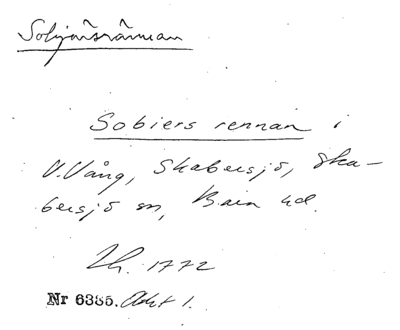 Sobjärsrännan
Sobiers rennan i
V. Vång, Skabersjö, Ska-
bersjö sn, Bara hd.
Lh. 1772
Nr 6385. Akt 1.